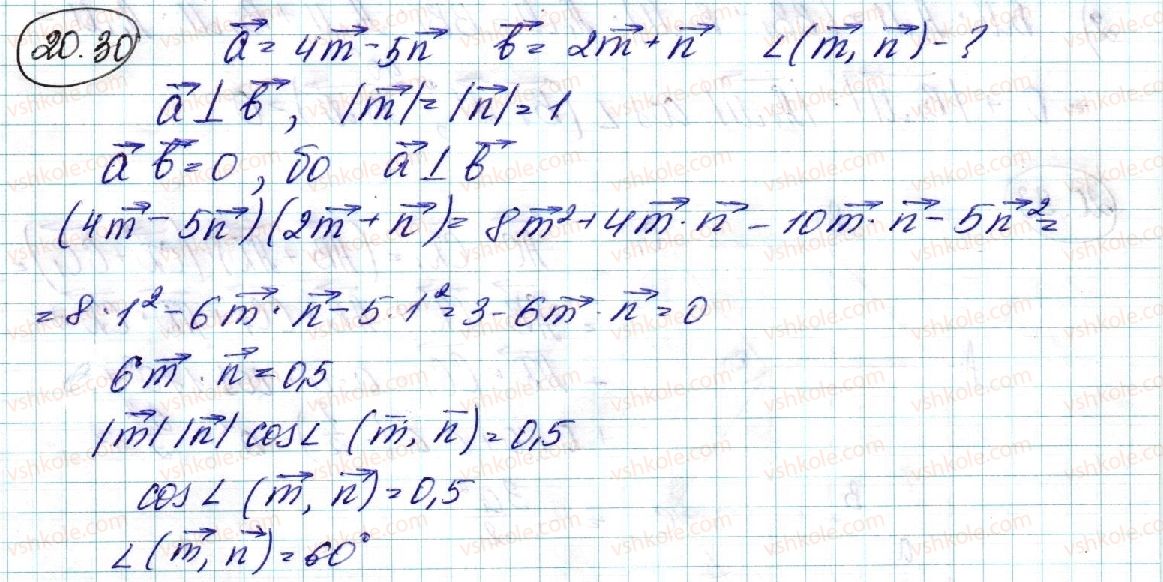 20.30 a⃗ = 4m⃗ - 5n⃗ b⃗ = 2m⃗ + n⃗ ∠(m⃗, n⃗) - ?
a⃗ ⊥ b⃗, |m⃗| = |n⃗| = 1
a⃗ b⃗ = 0, бо a⃗ ⊥ b⃗
(4m⃗ - 5n⃗)(2m⃗ + n⃗) = 8m⃗² + 4m⃗ · n⃗ - 10m⃗ · n⃗ - 5n⃗² =
= 8 · 1² - 6m⃗ · n⃗ - 5 · 1² = 3 - 6m⃗ · n⃗ = 0
6m⃗ · n⃗ = 0,5
|m⃗| |n⃗| cos∠ (m̄, n̄) = 0,5
cos∠ (m⃗, n⃗) = 0,5
∠(m⃗, n⃗) = 60°